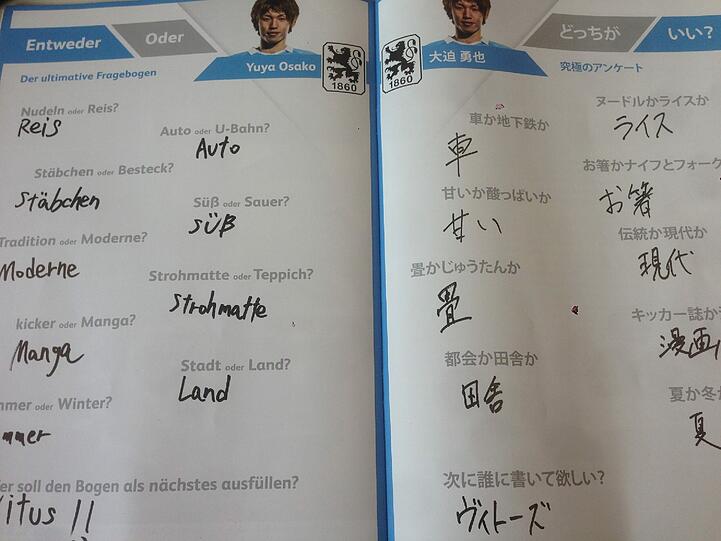 Entweder
Oder
Der ultimative Fragebogen
Yuya Osako
1860
Nudeln oder Reis?
Reis
Auto oder U-Bahn?
Auto
Stäbchen oder Besteck?
Stäbchen
Süß oder Sauer?
süß
Tradition oder Moderne?
Moderne
Strohmatte oder Teppich?
Strohmatte
kicker oder Manga?
Manga
Stadt oder Land?
Land
mmer oder Winter?
mmer
er soll den Bogen als nächstes ausfüllen?
itus!!
1860
大迫 勇也
どっちが
いい?
究極のアンケート
ヌードルかライスか
ライス
車か地下鉄か
車
お箸かナイフとフォーク
お箸
甘いか酸っぱいか
甘い
伝統か現代か
現代
畳かじゅうたんか
畳
キッカー誌か
漫画
都会か田舎か
田舎
夏か冬か
夏
次に誰に書いて欲しい?
ヴィトーズ